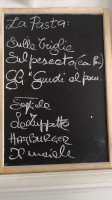 La Pasta:
Sulle Triglie
Sul pescato (
Gli "Gnudi al
Seppie
Le Zuppette
HAMBURGER
Il maiale